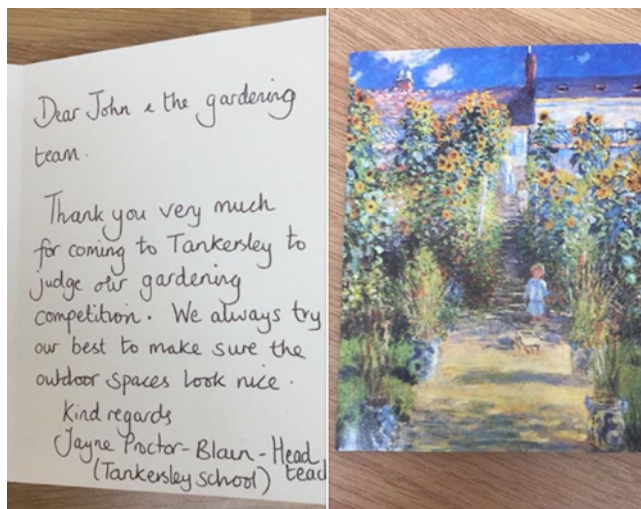 Dear John & the gardening
team.
Thank you very much
for coming to Tankersley to
judge our gardening
competition. We always try
our best to make sure the
outdoor spaces look nice.
Kind regards
Jayne Proctor-Blain - Head
(Tankersley School) teac